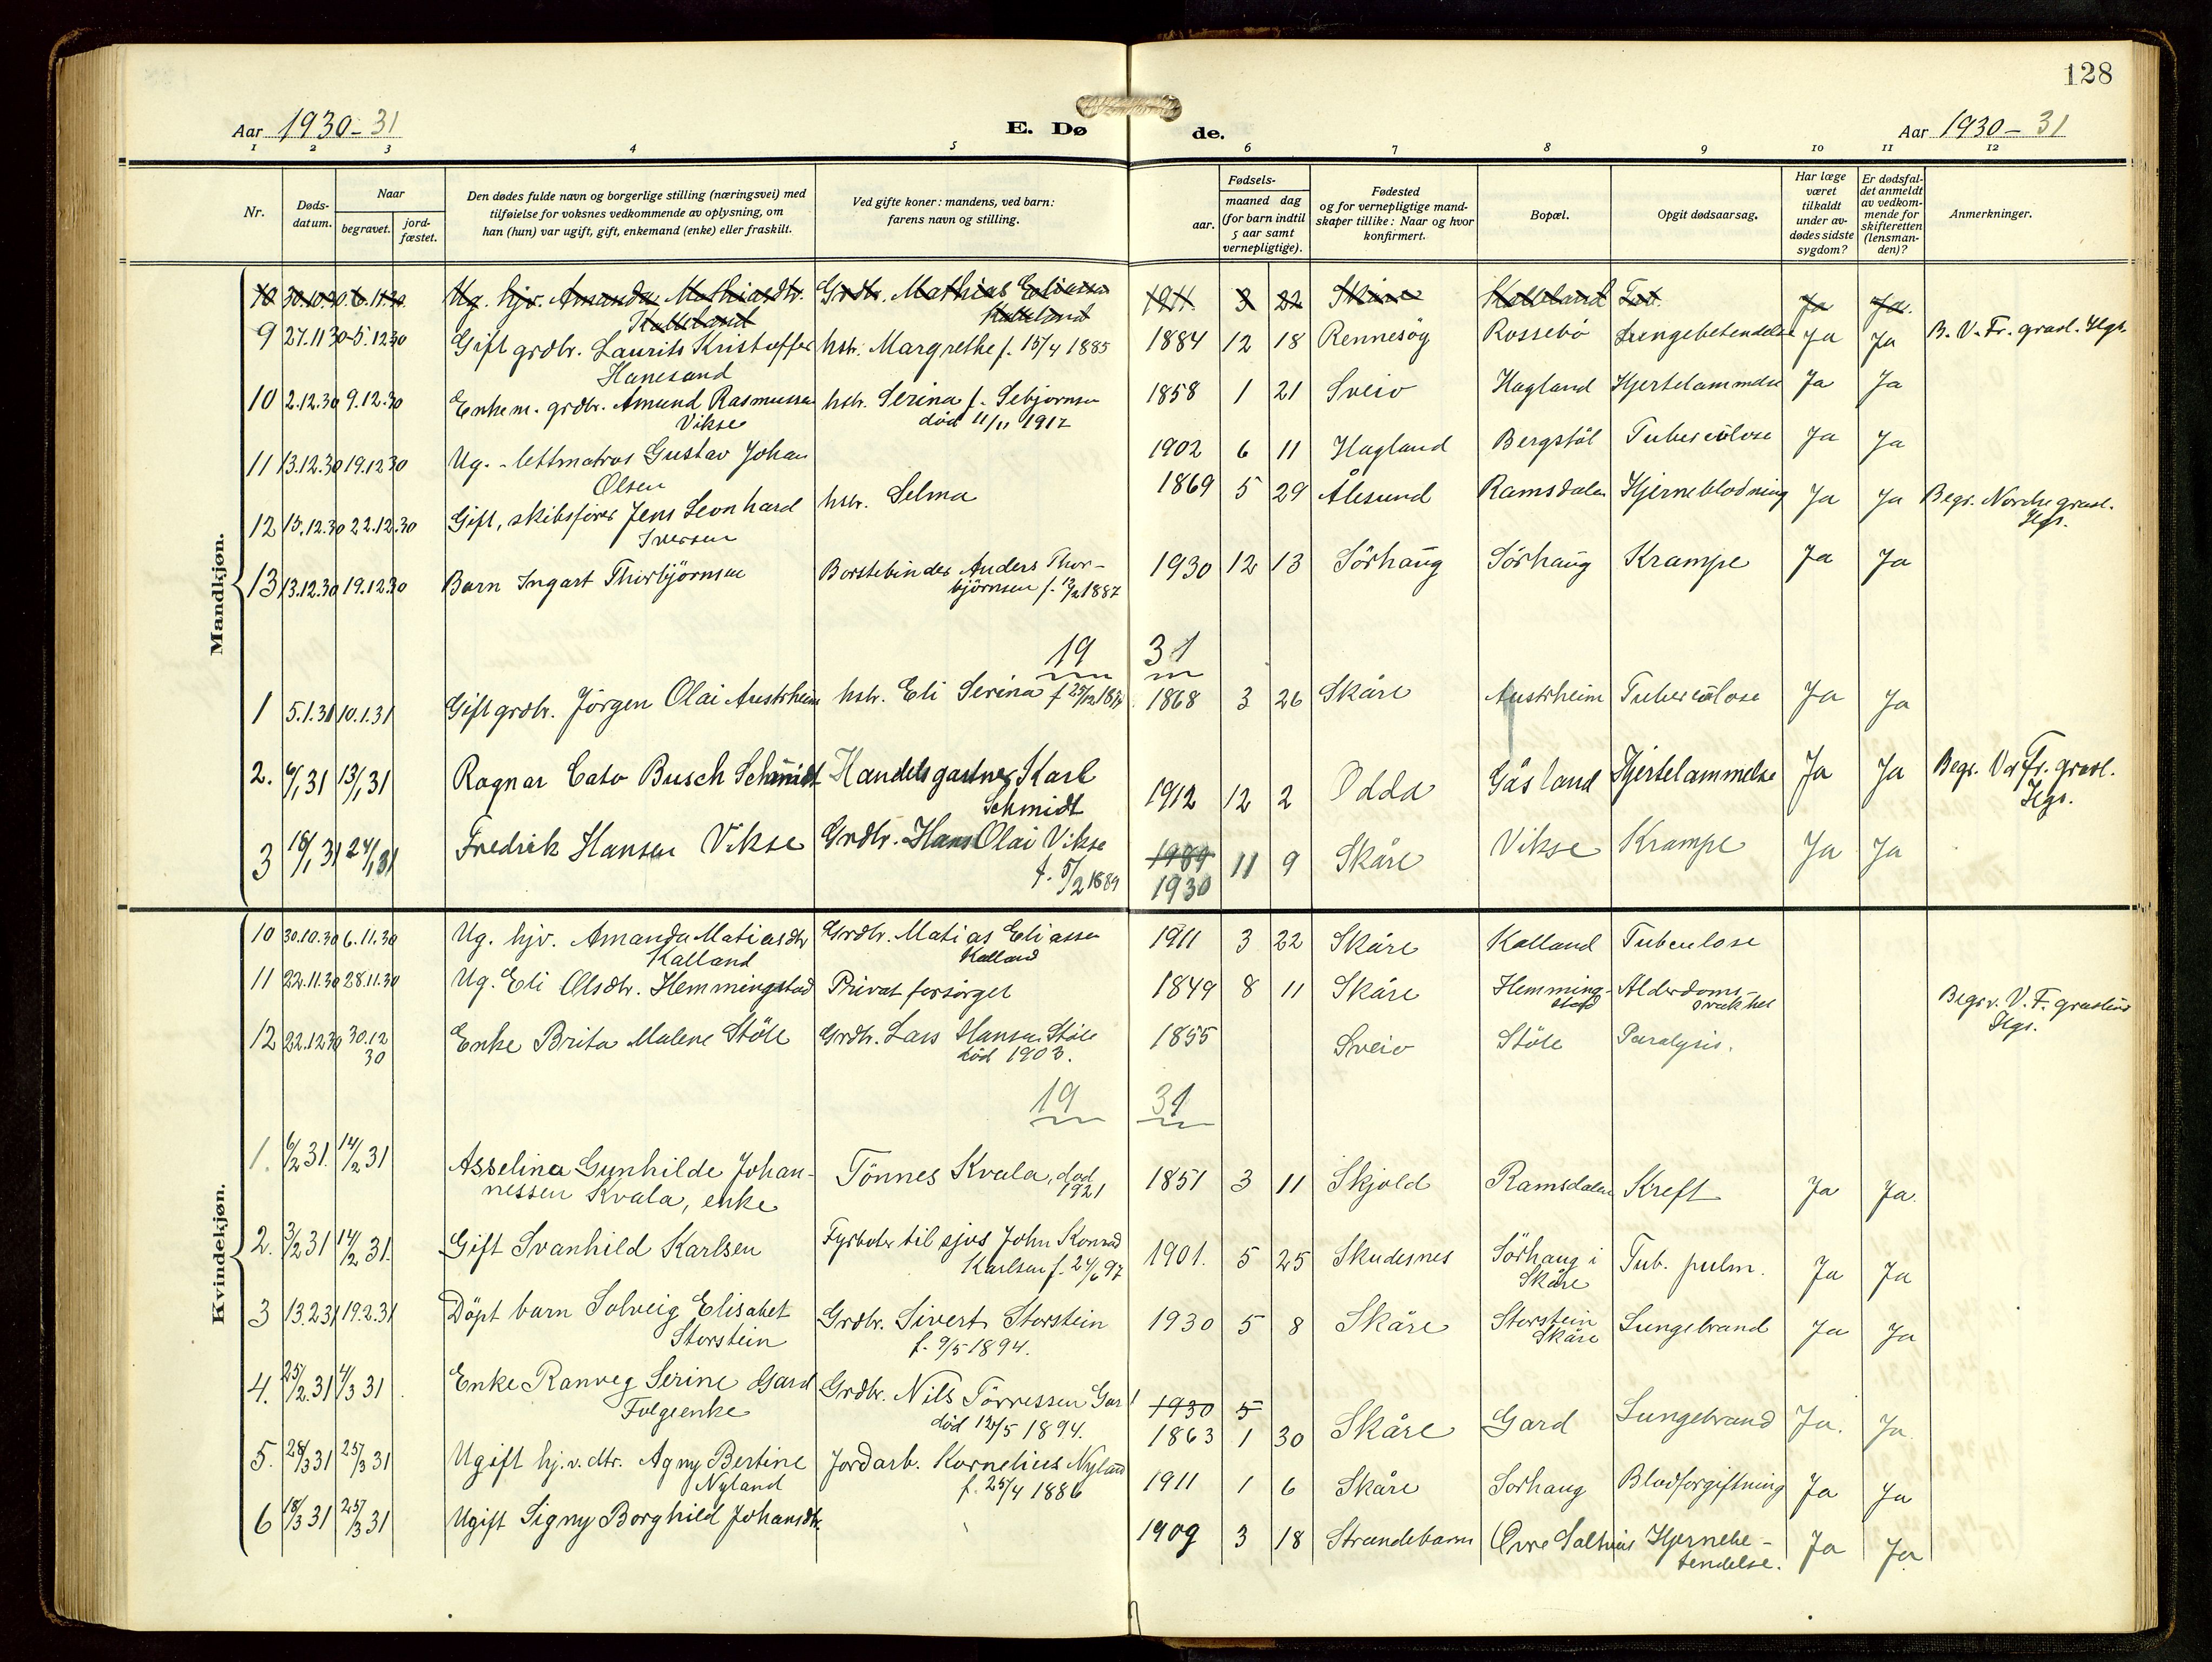 128
Aar 1930-31 E. Dø de. Aar 1930-31
1 2 3 4 5 6 7 8 9 10 11 12
Nr.
Døds-
datum.
Naar
begravet.
jord-
fæstet.
Den dødes fulde navn og borgerlige stilling (næringsvei) med
tilføielse for voksnes vedkommende av oplysning, om
han (hun) var ugift, gift, enkemand (enke) eller fraskilt.
Ved gifte koner: mandens, ved barn:
farens navn og stilling.
Fødsels-
aar.
maaned dag
(for barn indtil
5 aar samt
vernepligtige).
Fødested
og for vernepligtige mand-
skaper tillike: Naar og hvor
konfirmert.
Bopæl.
Opgit dødsaarsag.
Har læge
været
tilkaldt
under av-
dødes sidste
sygdom?
Er dødsfal-
det anmeldt
av vedkom-
mende for
skifteretten
(lensman-
den)?
Anmerkninger.
Mandkjøn.
10 30.10.30 6.11.30 Ug. hjv. Amanda Mathiasdtr. Grdbr. Mathias Eliassen 1911 3 22 Skåre Kalleland Tub. Ja Ja.
Kalleland Kalleland
9 27.11.30 5.12.30 Gift grdbr. Laurits Kristoffer hstr. Margrethe f. 15/4 1885 1884 12 18 Rennesøy Rossebö Lungebetendelse Ja Ja B. V. Fr. gravl. Hgs.
Hanesand
10 2.12.30 9.12.30 Enkem. grdbr. Amund Rasmussen hstr. Serina f. Sebjørnsen 1858 1 21 Sveio Hagland Hjertelammelse Ja Ja
Vikse død 11/11 1912
11 13.12.30 19.12.30 Ug. - lettmatros Gustav Johan 1902 6 11 Hagland Bergstöl Tuberculose Ja Ja
Olsen
12 15.12.30 22.12.30 Gift, skibsfører Jens Leonhard hstr. Selma 1869 5 29 Ålesund Ramsdalen Hjerneblødning Ja Ja Begr. Nordre gravl.
Iversen Hgs.
13 13.12.30 19.12.30 Barn Ingart Thorbjörnsen Børstebinder Anders Thor- 1930 12 13 Sörhaug Sörhaug Krampe Ja Ja
björnsen f. 1887
19 31
1 5.1.31 10.1.31 Gift grdbr. Jörgen Olai Austrheim hstr. Eli Serina f. 1868 3 26 Skåre Austrheim Tuberculose Ja Ja
2. 6/1 31 13/1 31 Ragnar Cato Busch Schmidt Handelsgartner Karl 1912 12 2 Odda Gåsland Hjertelammelse Ja Ja Begr. Vor Fr. gravl.
Schmidt Hgs.
3 16/1 31 24/1 31 Fredrik Hansen Vikse Grdbr. Hans Olai Vikse 1989 11 9 Skåre Vikse Krampe Ja Ja
f. 5/2 1889 1930
Kvindekjøn.
10 30.10.30 6.11.30 Ug. hjv. Amanda Matiasdtr Grdbr. Matias Eliassen 1911 3 22 Skåre Kalland Tubeulose
Kalland Kalland
11 22.11.30 28.11.30 Ug. Eli Olsdtr. Hemmingstad Privat forsörget 1849 8 11 Skåre Hemming- Alderdoms-
stad svakhet Begrv. V. F. gravlund
Hgs.
12 22.12.30 30.12 Enke Brita Malene Stöle Grdbr. Lars Hansen Stöle 1855 Sveio Stöle Paralysis.
30 död 1903.
19 31
1. 6/2 31. 14/2 31 Asselina Gunhilde Johan- Tönnes Kvala, død 1851 3 11 Skjold Ramsdalen Kreft Ja Ja.
nessen Kvala, enke 1921
2. 3/2 31 14/2 31. Gift Svanhild Karlsen Fyrbøter til sjøs John Konrad 1901. 5 25 Skudesnes Sörhaug i Tub. pulm. Ja Ja
Karlsen f. 24/6 97 Skåre
3 13.2.31 19.2.31 Döpt barn Solveig Elisabet Grdbr. Sivert Storstein 1930 5 8 Skåre Storstein Lungebrand Ja Ja
Storstein f. 9/5 1894. Skåre
4. 25/2 31 4/3 31 Enke Ranveg Serine Gard Grdbr. Nils Törressen Gard 1930 5
Folgeenke död 12/5 1894. 1863 1 30 Skåre Gard Lungebrand Ja. Ja.
5. 28/3 31 25/3 31 Ugift hj.v. dtr. Agny Bertine Jordarb. Kornelius Nyland 1911 1 6 Skåre Sorhaug Blodforgiftning Ja Ja
Nyland f. 25/4 1886
6 18/3 31 25/3 31 Ugift Signy Borghild Johansdtr. 1909 3 18 Strandebarm Övre Hjernebe- Ja Ja.
tendelse.